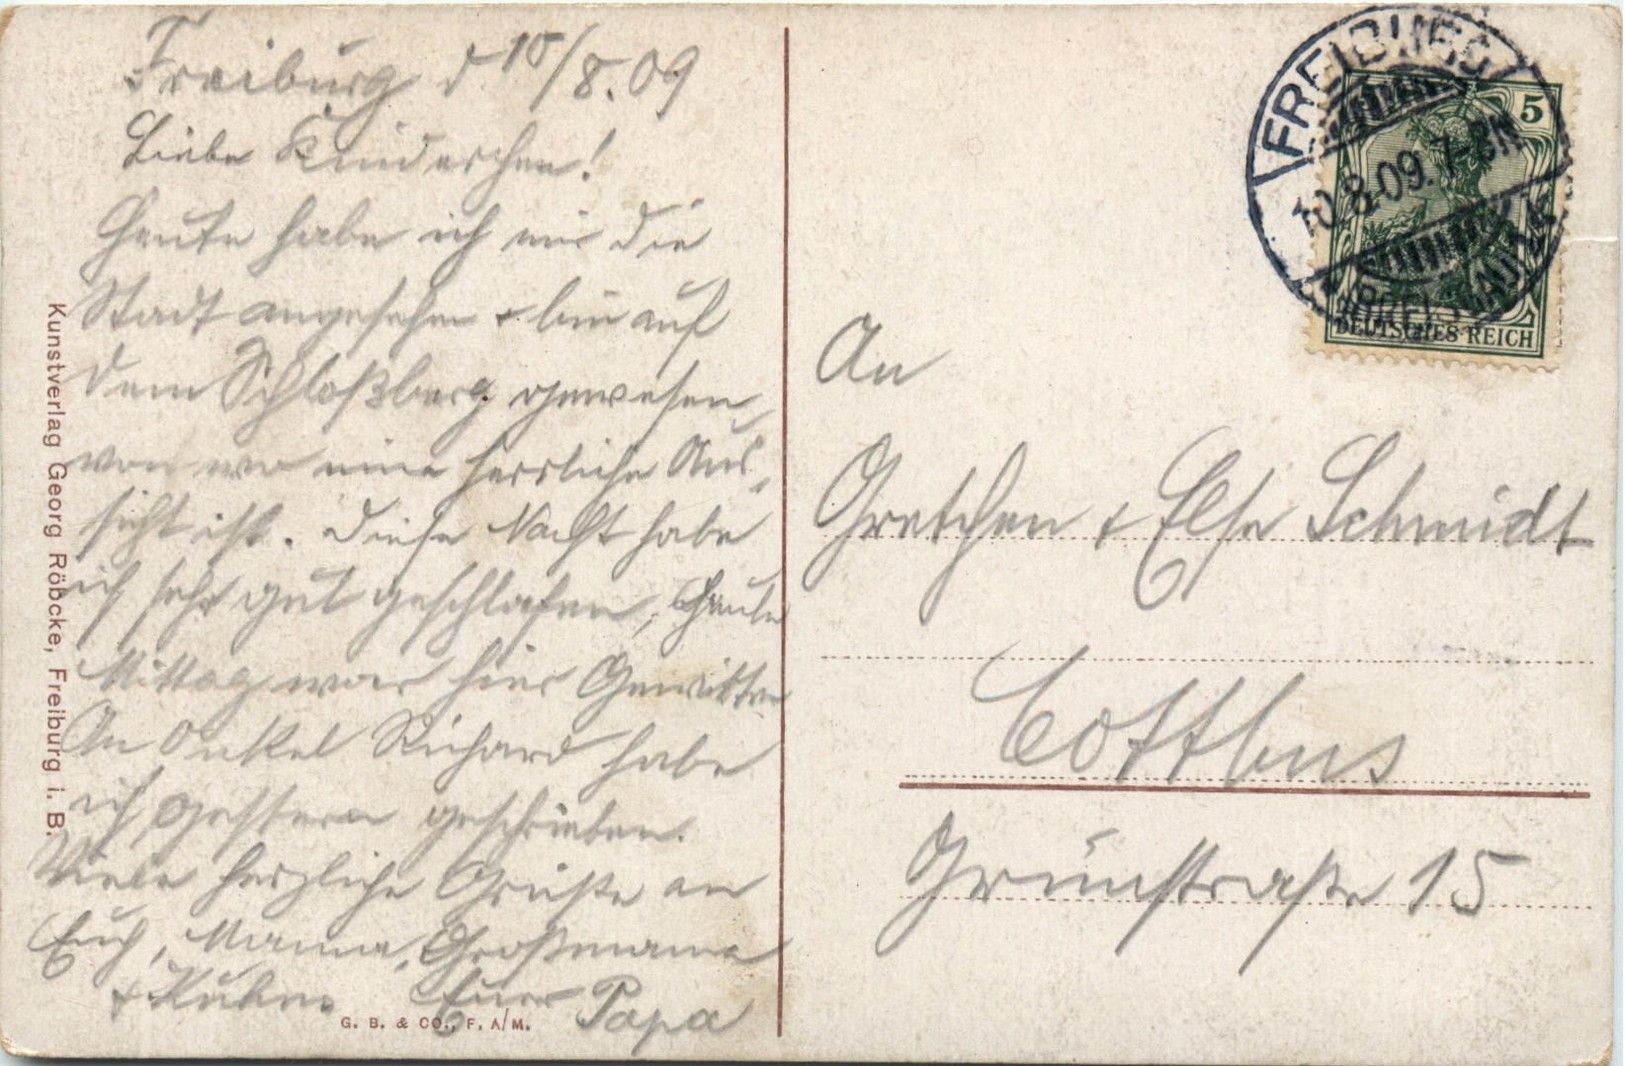 Freiburg d 10/8.09
Liebe Kinderchen!
Heute habe ich mir die
Stadt angesehen + bin auf
dem Schloßberg gewesen,
von wo eine herrliche Aus-
sicht ist. Diese Nacht habe
ich sehr gut geschlafen, Heute
Mittag war hier Gewitter
An Onkel Richard habe
ich gestern geschrieben.
Viele herzliche Grüße an
Euch, Mama, Großmama
+ Euer Papa
Kunstverlag Georg Röbcke, Freiburg i. B.
G. B. & CO., F. A/M.
FREIBURG
10.8.09. 7-8N
(BREISGAU)
5
DEUTSCHES REICH
An
Gretchen + Else Schmidt
Cottbus
Grünstraße 15